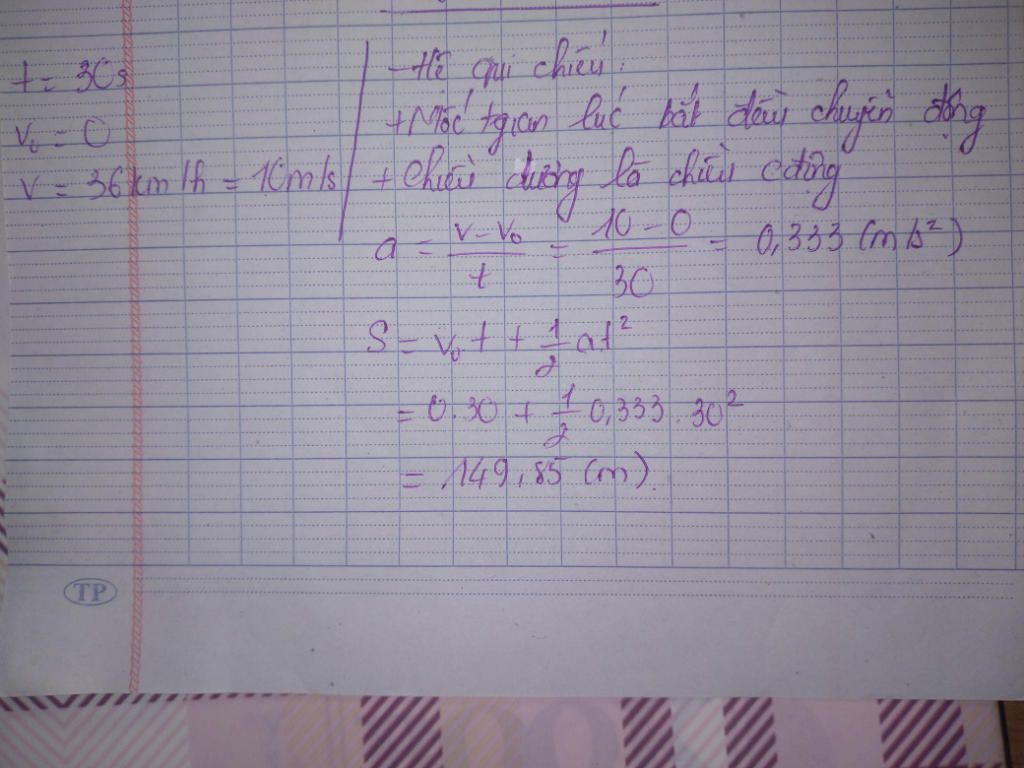 t = 30s
v₀ = 0
v = 36km/h = 10m/s
- Hệ qui chiếu:
+ Mốc tgian lúc bắt đầu chuyển động
+ Chiều dương là chiều cđộng
a = (v - v₀)/t = (10 - 0)/30 = 0,333 (m/s²)
S = v₀ t + 1/2 at²
= 0.30 + 1/2 0,333 . 30²
= 149,85 (m).
TP